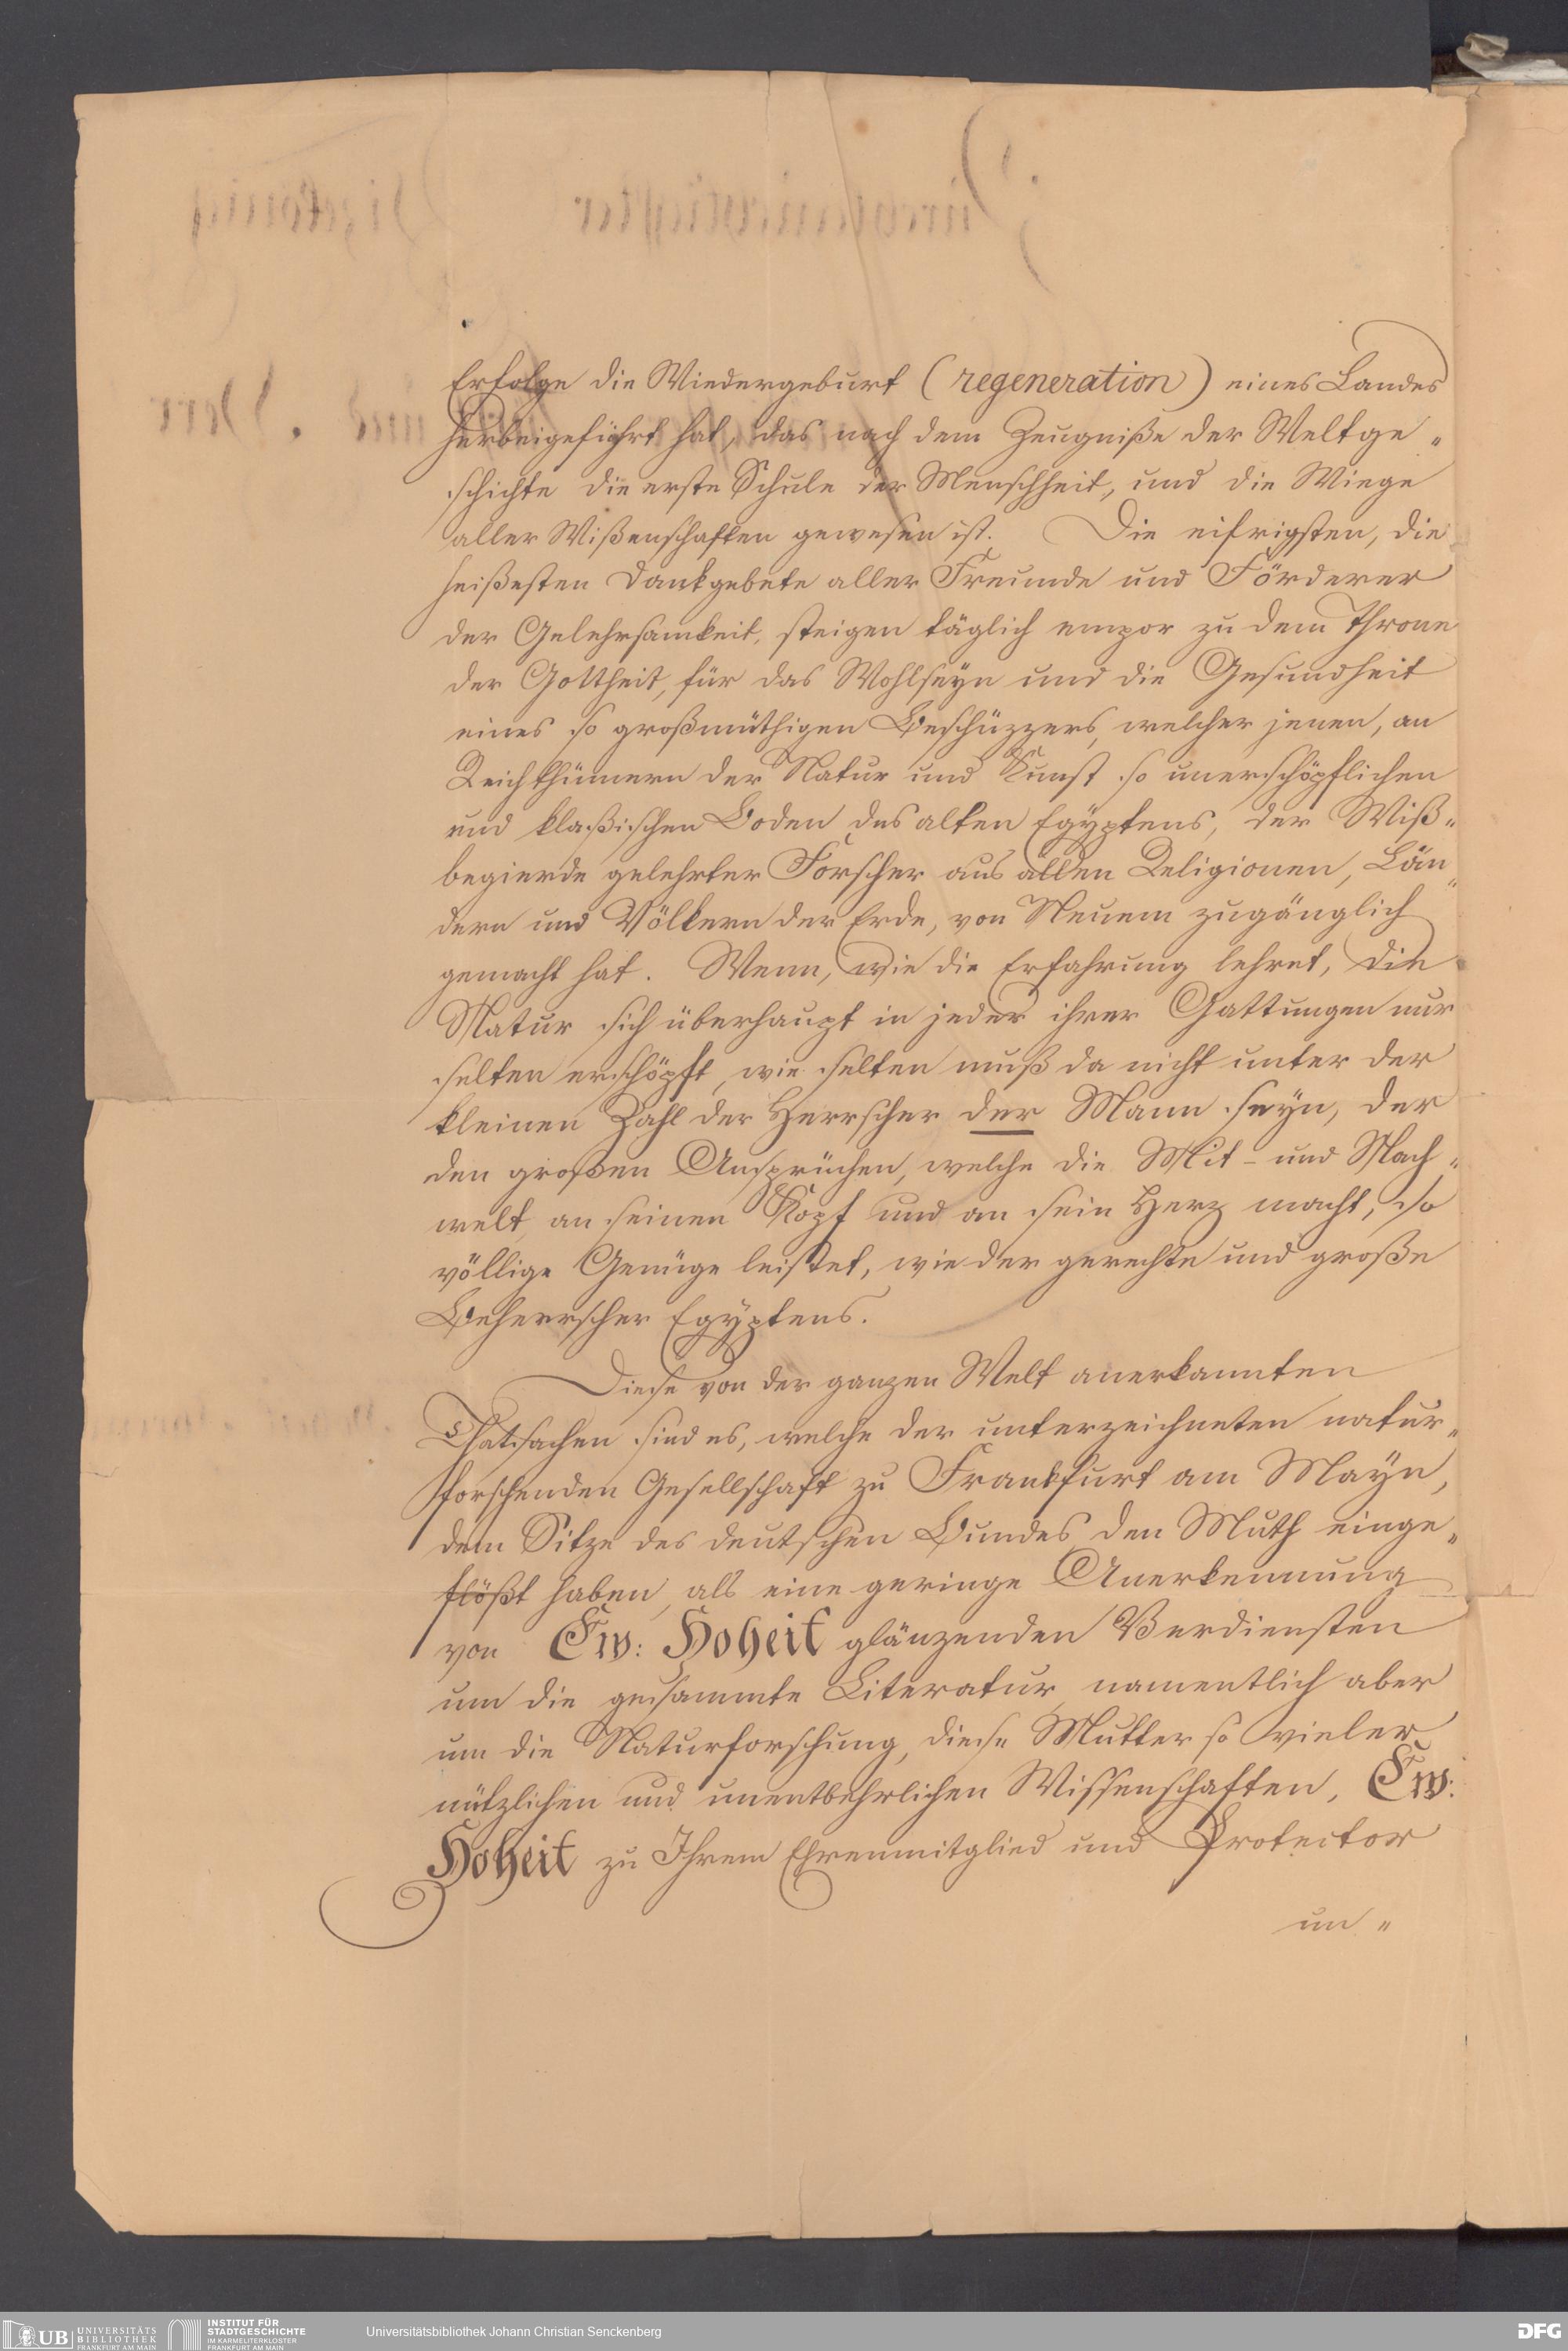 Erfolge die Wiedergeburt (regeneration) eines Landes
herbeigeführt hat, das nach dem Zeugniße der Weltge„
schichte die erste Schule der Menschheit, und die Wiege
aller Wißenschaften gewesen ist. Die eifrigsten, die
heißesten Dankgebete aller Freunde und Förderer
der Gelehrsamkeit, steigen täglich empor zu dem Throne
der Gottheit, für das Wohlseyn und die Gesundheit
eines so großmüthigen Beschüzzers, welcher jenen, an
Reichthümern der Natur und Kunst so unerschöpflichen
und klaßischen Boden des alten Egyptens, der Wiß„
begierde gelehrter Forscher aus allen Religionen, Län„
dern und Völkern der Erde, von Neuem zugänglich
gemacht hat. Wenn, wie die Erfahrung lehret, die
Natur sich überhaupt in jeder ihrer Gattungen nur
selten erschöpft, wie selten muß da nicht unter der
kleinen Zahl der Herrscher der Mann seyn, der
den großen Ansprüchen, welche die Mit- und Nach„
welt, an seinen Kopf und an sein Herz macht, so
völlige Genüge leistet, wie der gerechte und große
Beherrscher Egyptens.
Diese von der ganzen Welt anerkannten
Thatsachen sind es, welche der unterzeichneten natur„
forschenden Gesellschaft zu Frankfurt am Mayn,
dem Sitze des deutschen Bundes, den Muth einge„
flößt haben, als eine geringe Anerkennung
von Ew: Hoheit glänzenden Verdiensten
um die gesammte Literatur, namentlich aber
um die Naturforschung, diese Mutter so vieler
nützlichen und unentbehrlichen Wissenschaften, Ew:
Hoheit zu Ihrem Ehrenmitglied und Protector
un„
UB UNIVERSITÄTS
BIBLIOTHEK
FRANKFURT AM MAIN
INSTITUT FÜR
STADTGESCHICHTE
IM KARMELITERKLOSTER
FRANKFURT AM MAIN
Universitätsbibliothek Johann Christian Senckenberg
DFG